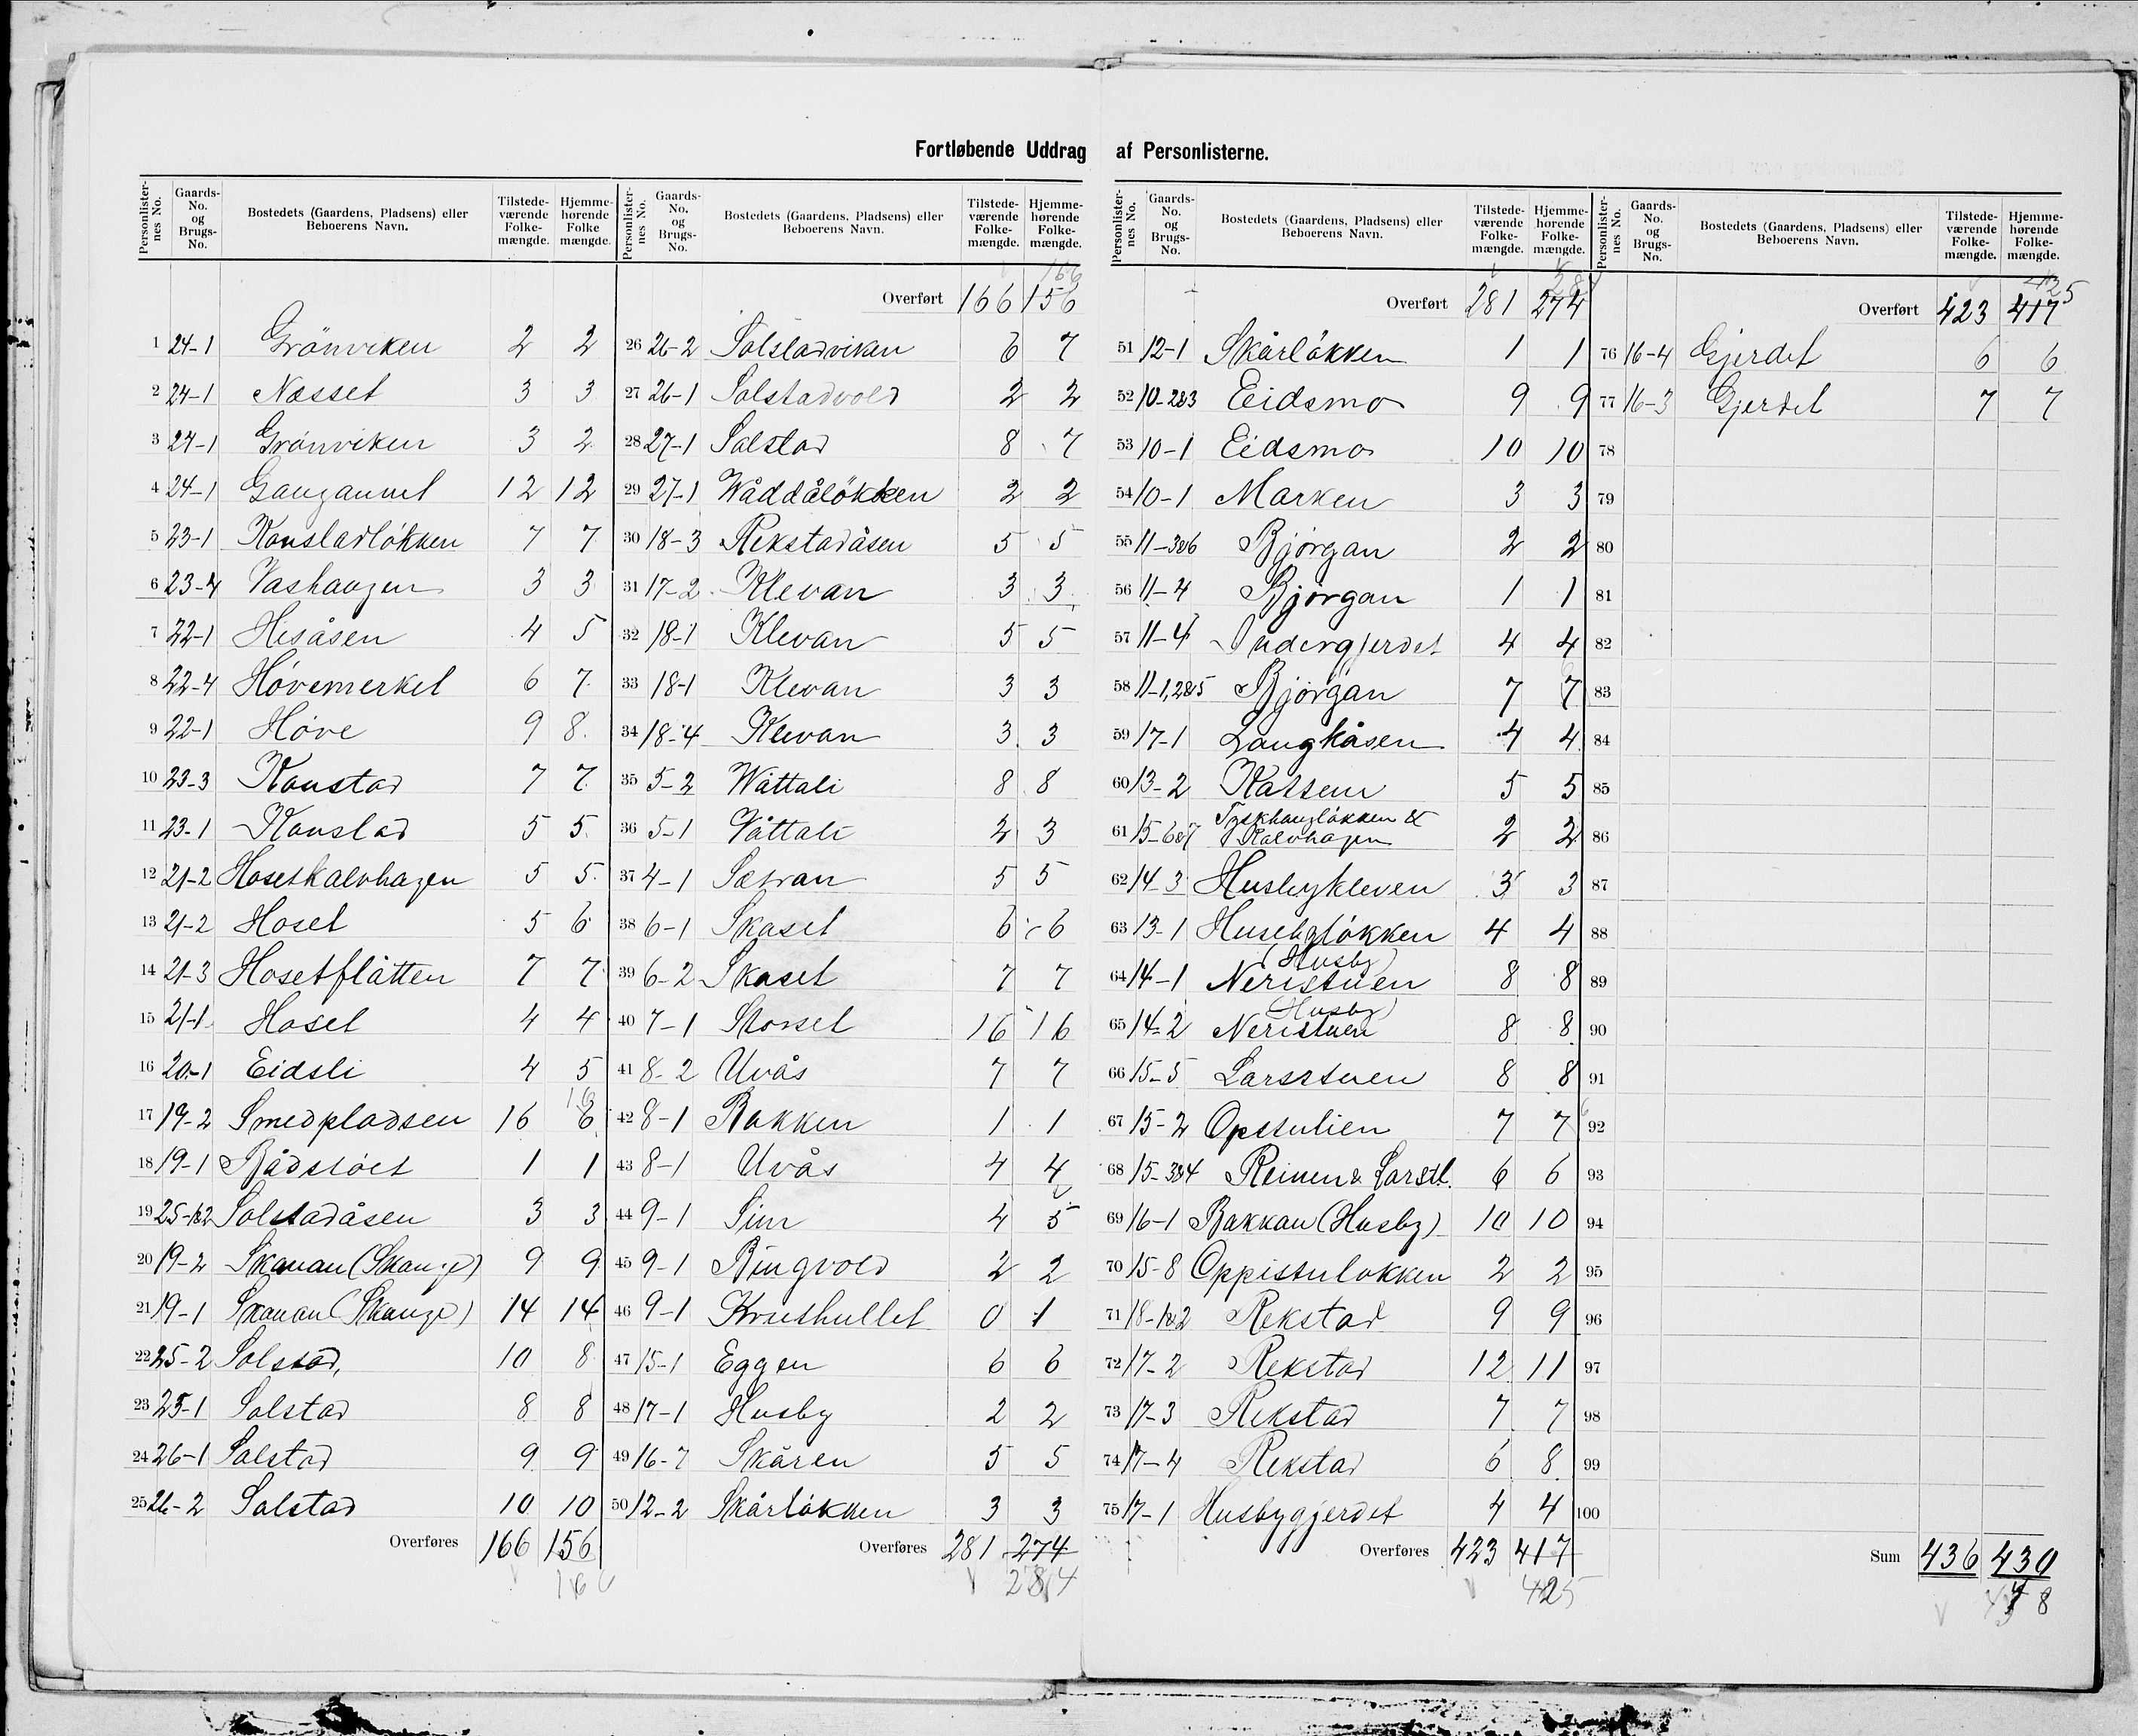 Fortløbende Uddrag af Personlisterne.
Personlisternes No. Gaards-No. og Brugs-No. Bostedets (Gaardens, Pladsens) eller Beboerens Navn. Tilstedeværende Folkemængde. Hjemmehørende Folkemængde.
1 24-1 Grönviken 2 2
2 24-1 Næsset 3 3
3 24-1 Grönviken 3 2
4 24-1 12 12
5 23-1 Konstadlökken 7 7
6 23-4 Vashaugen 3 3
7 22-1 Hesåsen 4 5
8 22-4 Hövemerket 6 7
9 22-1 Höve 9 8
10 23-3 Konstad 7 7
11 23-1 Konstad 5 5
12 21-2 Hosetkalvhagen 5 5
13 21-2 Hoset 5 6
14 21-3 Hosetflåtten 7 7
15 21-1 Hoset 4 4
16 20-1 Eidsli 4 5
17 19-2 Smedpladsen 16 6 16
18 19-1 Bådstöet 1 1
19 25-1&2 Solstadåsen 3 3
20 19-2 Skanan (Skange) 9 9
21 19-1 Skanan (Skange) 14 14
22 25-2 Solstad, 10 8
23 25-1 Solstad 8 8
24 26-1 Solstad 9 9
25 26-2 Solstad 10 10
Overføres 166 156
166
Personlisternes No. Gaards-No. og Brugs-No. Bostedets (Gaardens, Pladsens) eller Beboerens Navn. Tilstedeværende Folkemængde. Hjemmehørende Folkemængde.
166
Overført 166 156
26 26-2 Solstadviken 6 7
27 26-1 Solstadvold 2 2
28 27-1 Solstad 8 7
29 27-1 Wåddålökken 2 2
30 18-3 Rekstadåsen 5 5
31 17-2 Klevan 3 3
32 18-1 Klevan 5 5
33 18-1 Klevan 3 3
34 18-4 Klevan 3 3
35 5-2 Wåttali 8 8
36 5-1 Våttali 2 3
37 4-1 Sætran 5 5
38 6-1 Skaset 6 6
39 6-2 Skaset 7 7
40 7-1 Storset 16 16
41 8-2 Uvås 7 7
42 8-1 Bakken 1 1
43 8-1 Uvås 4 4
44 9-1 Sim 4 5
45 9-1 Ringvold 2 2
46 9-1 Kruthullet 0 1
47 15-1 Eggen 6 6
48 17-1 Husby 2 2
49 16-7 Skåren 5 5
50 12-2 Skårlökken 3 3
Overføres 281 274
284
Personlisternes No. Gaards-No. og Brugs-No. Bostedets (Gaardens, Pladsens) eller Beboerens Navn. Tilstedeværende Folkemængde. Hjemmehørende Folkemængde.
Overført 281 274
51 12-1 Skårlökken 1 1
52 10-2&3 Eidsmo 9 9
53 10-1 Eidsmo 10 10
54 10-1 Marken 3 3
55 11-3&6 Bjørgan 2 2
56 11-4 Bjørgan 1 1
57 11-4 Indergjerdet 4 4
58 11-1,2&5 Bjørgan 7 7
59 17-1 Langhåsen 4 4
60 13-2 Kassem 5 5
61 15-6&7 Tyskhauglökken & Kalvhagen 2 2
62 14-3 Husbykleven 3 3
63 13-1 Husebylökken 4 4
64 14-1 Neristuen (Husby) 8 8
65 14-2 Neristuen (Husby) 8 8
66 15-5 Larsstuen 8 8
67 15-2 Opstulien 7 7
68 15-3&4 Reinen & Larsst. 6 6
69 16-1 Bakkan (Husby) 10 10
70 15-8 Oppistulokken 2 2
71 18-1&2 Rekstad 9 9
72 17-2 Rekstad 12 11
73 17-3 Rekstad 7 7
74 17-4 Rekstad 6 8
75 17-1 Husbygjerdet 4 4
Overføres 423 417
425
Personlisternes No. Gaards-No. og Brugs-No. Bostedets (Gaardens, Pladsens) eller Beboerens Navn. Tilstedeværende Folkemængde. Hjemmehørende Folkemængde.
425
Overført 423 417
76 16-4 Gjerdet 6 6
77 16-3 Gjerdet 7 7
78
79
80
81
82
83
84
85
86
87
88
89
90
91
92
93
94
95
96
97
98
99
100
Sum 436 430